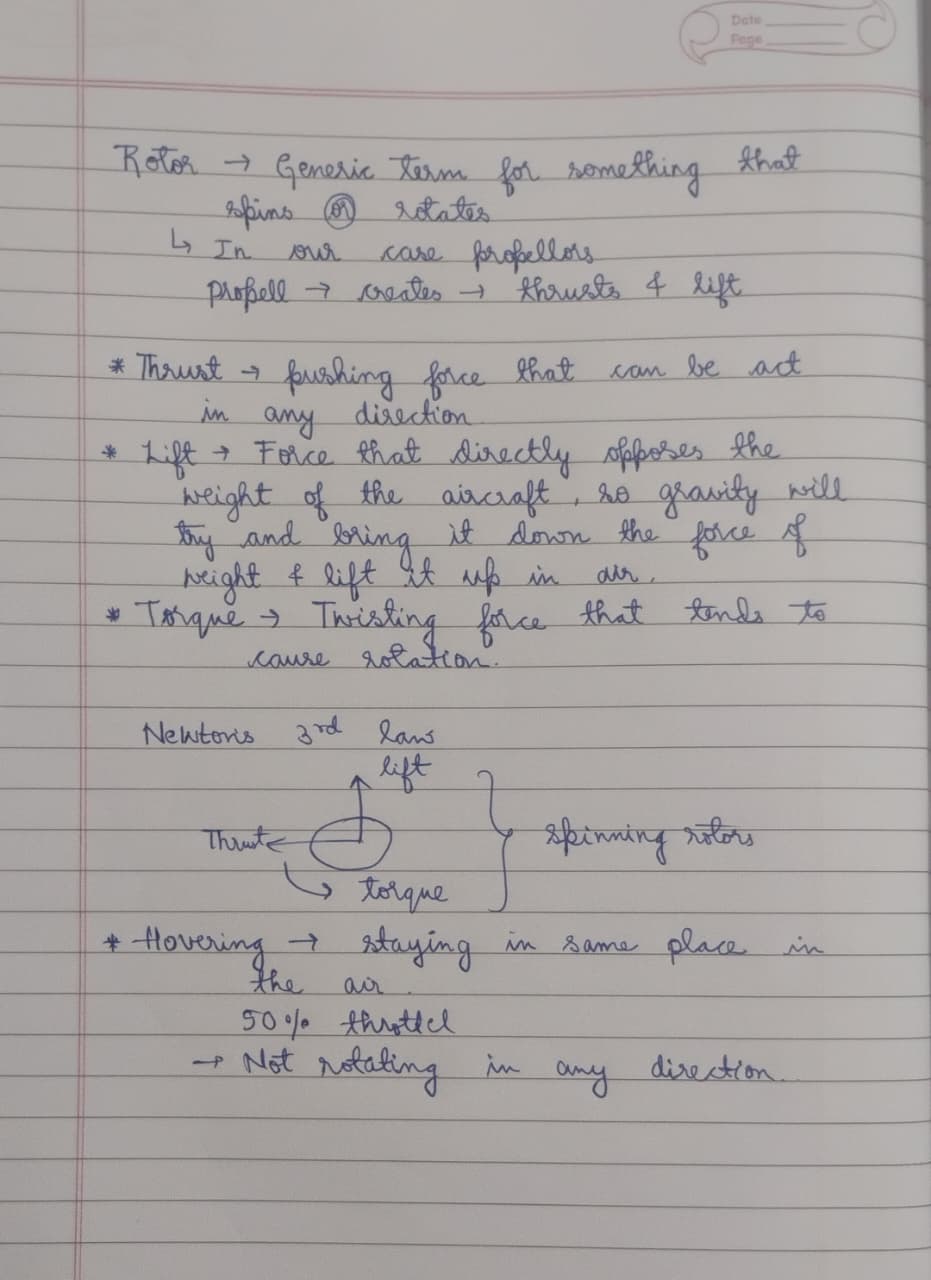 Date
Page
Rotor → Generic term for something that
spins or rotates
↳ In our case propellors
propell → creates → thrusts & lift
* Thrust → pushing force that can be act
in any direction
* Lift → Force that directly opposes the
weight of the aircraft, so gravity will
try and bring it down the force of
weight & lift it up in air.
* Torque → Twisting force that tends to
cause rotation.
Newtons 3rd law
lift
Thrust
spinning rotors
torque
* Hovering → staying in same place in
the air.
50% throttel
→ Not rotating in any direction.